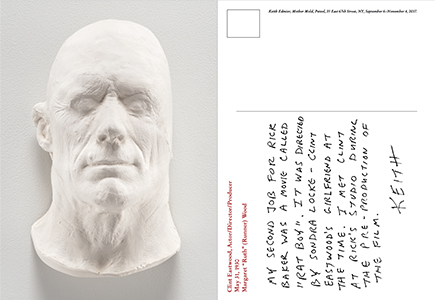 Keith Edmier, Mother Mold, Petzel, 35 East 67th Street, NY, September 6–November 4, 2017
Clint Eastwood, Actor/Director/Producer
May 31, 1930
Margaret "Ruth" (Runner) Wood
MY SECOND JOB FOR RICK
BAKER WAS A MOVIE CALLED
"RAT BOY". IT WAS DIRECTED
BY SONDRA LOCKE - CLINT
EASTWOOD'S GIRLFRIEND AT
THE TIME. I MET CLINT
AT RICK'S STUDIO DURING
THE PRE-PRODUCTION OF
THE FILM.
KEITH